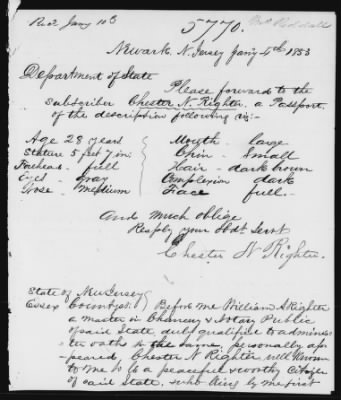 Recd Jany 10th
5770.
Newark. N. Jersey Jany 4th 1853
Department of State
Please forward to the
subscriber Chester N. Righter. a Passport
of the description following viz:-
Age 28 years
Stature 5 feet 7 in:
Forehead - full
Eyes - gray
Nose - medium
Mouth - large
Chin - Small
Hair - dark brown
Complexion dark
Face full.
And much oblige
Respfly your Obdt. Servt
Chester N Righter.
State of New Jersey
Essex County ss:
Before me William A Righter
a master in Chancery & Notary Public
of said State, duly qualified to adminis
ter oaths in the same, personally ap
peared, Chester N Righter, well known
to me to be a peaceful & worthy Citizen
of said State. who being by me first